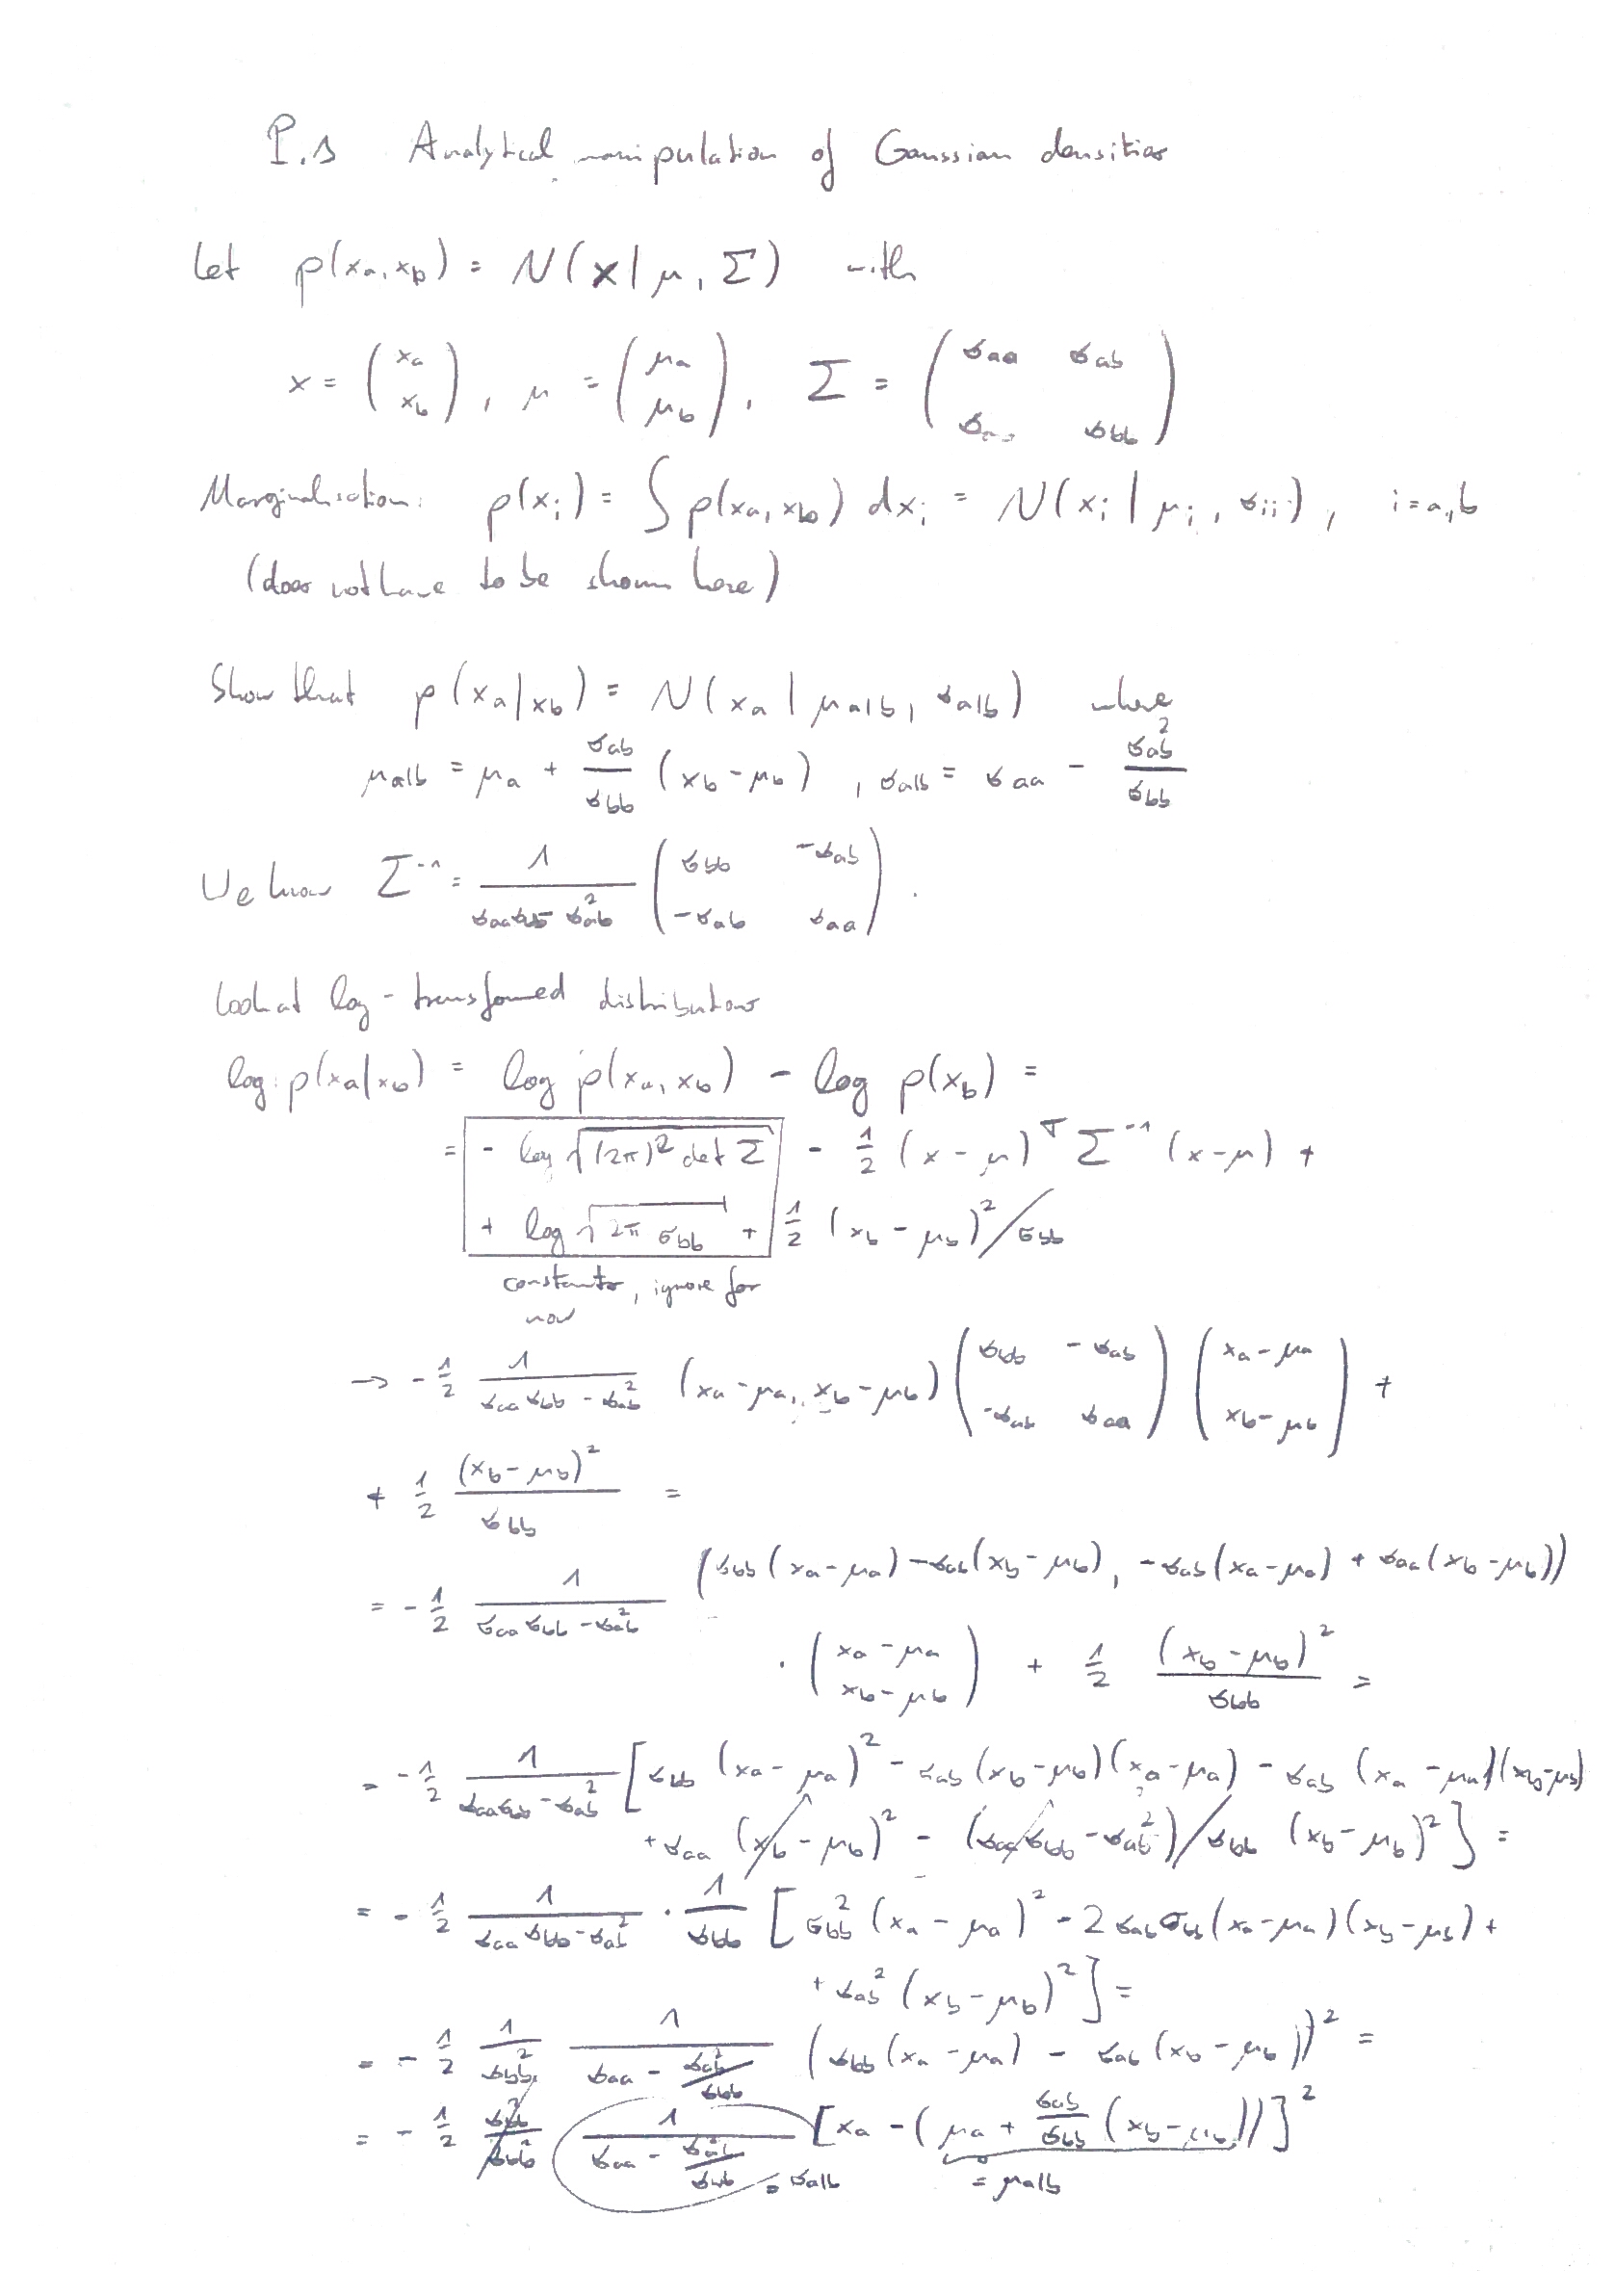 P.1 Analytical manipulation of Gaussian densities
Let p(xₐ, x_b) = N(x | μ, Σ) with
x = (xₐ x_b), μ = (μₐ μ_b), Σ = (σ_aa σ_ab
σ_bb)
Marginalisation: p(x_i) = ∫ p(x_a, x_b) dx_i = N(x_i | μ_i, σ_ii), i = a, b
(does not have to be shown here)
Show that p(x_a | x_b) = N(x_a | μ_a|b, σ_a|b) where
μ_a|b = μ_a + σ_ab/σ_bb (x_b - μ_b), σ_a|b = σ_aa - σ_ab²/σ_bb
We know Σ⁻¹ = 1/(σ_aa σ_bb - σ_ab²) (σ_bb -σ_ab
-σ_ab σ_aa).
Look at log-transformed distributions
log p(x_a|x_b) = log p(x_a, x_b) - log p(x_b) =
= - log √((2π)² det Σ) - 1/2 (x-μ)^T Σ⁻¹ (x-μ) +
+ log √(2π σ_bb) + 1/2 (x_b - μ_b)²/σ_bb
constants, ignore for
now
→ - 1/2 1/(σ_aa σ_bb - σ_ab²) (x_a - μ_a, x_b - μ_b) (σ_bb -σ_ab
-σ_ab σ_aa) (x_a - μ_a
x_b - μ_b) +
+ 1/2 (x_b - μ_b)²/σ_bb =
= - 1/2 1/(σ_aa σ_bb - σ_ab²) (σ_bb (x_a - μ_a) - σ_ab (x_b - μ_b), -σ_ab (x_a - μ_a) + σ_aa (x_b - μ_b))
· (x_a - μ_a
x_b - μ_b) + 1/2 (x_b - μ_b)²/σ_bb =
= - 1/2 1/(σ_aa σ_bb - σ_ab²) [σ_bb (x_a - μ_a)² - σ_ab (x_b - μ_b)(x_a - μ_a) - σ_ab (x_a - μ_a)(x_b - μ_b)
+ σ_aa (x_b - μ_b)² - (σ_aa σ_bb - σ_ab²)/σ_bb (x_b - μ_b)²] =
= - 1/2 1/(σ_aa σ_bb - σ_ab²) · 1/σ_bb [σ_bb² (x_a - μ_a)² - 2 σ_ab σ_bb (x_a - μ_a)(x_b - μ_b) +
+ σ_ab² (x_b - μ_b)²] =
= - 1/2 1/σ_bb² 1/(σ_aa - σ_ab²/σ_bb) (σ_bb (x_a - μ_a) - σ_ab (x_b - μ_b))² =
= - 1/2 σ_bb²/σ_bb² 1/(σ_aa - σ_ab²/σ_bb) [x_a - (μ_a + σ_ab/σ_bb (x_b - μ_b))]²
= σ_a|b = μ_a|b